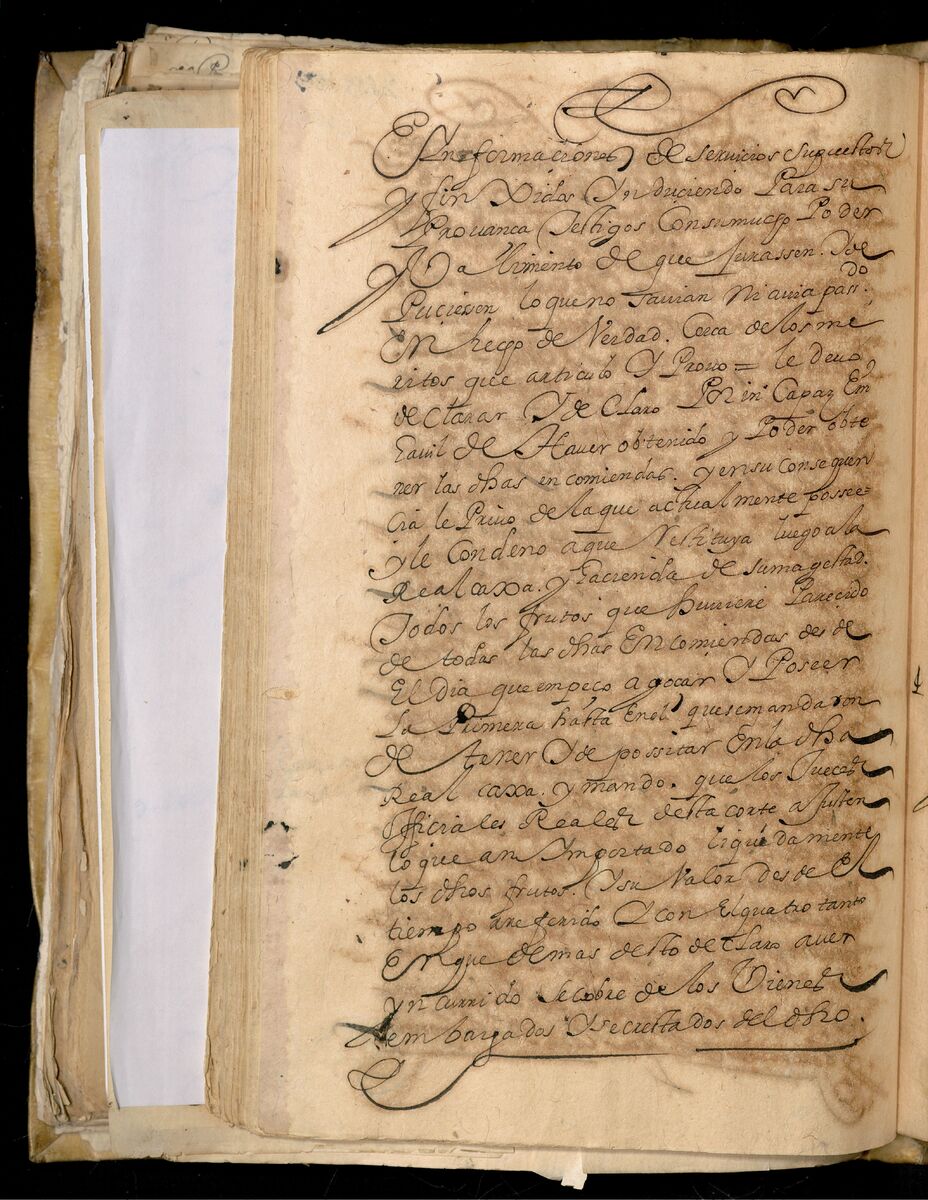 Ynformaciones de servicios supuestos
y finxidos Ynduciendo Para su
Provanca testigos Con su mucho Poder
Y Valimiento de que Jurassen Y de
Puciesen lo que no savian Ni avia pass.do
En hecho de Verdad. Cerca de los me
ritos que articulo Y Provo = le devo
declarar Y declaro Por in Capaz E in
havil de Haver obtenido y Poder obte
ner las dhas encomiendas. y en su consequen
cia le Privo de la que actualmente possee=
y le Condeno a que Restituya luego a la
Real caxa. y hacienda de su magestad.
Todos los frutos que huviere Parecido
de todas las dhas Encomiendas desde
El Dia que empeco a gocar Y Poseer
La Primera hasta en el que se mandaron
de tener Y depossitar En la dha
Real caxa. y mando. que los Jueces
officiales Reales desta corte ajusten
lo que an Ymportado liquidamente
los dhos frutos. Y su Valor desde El
tiempo referido Y con El quatro tanto
En que demas desto declaro aver
yncurrido se cobre de los Vienes
embargados Y secrestados del dho.